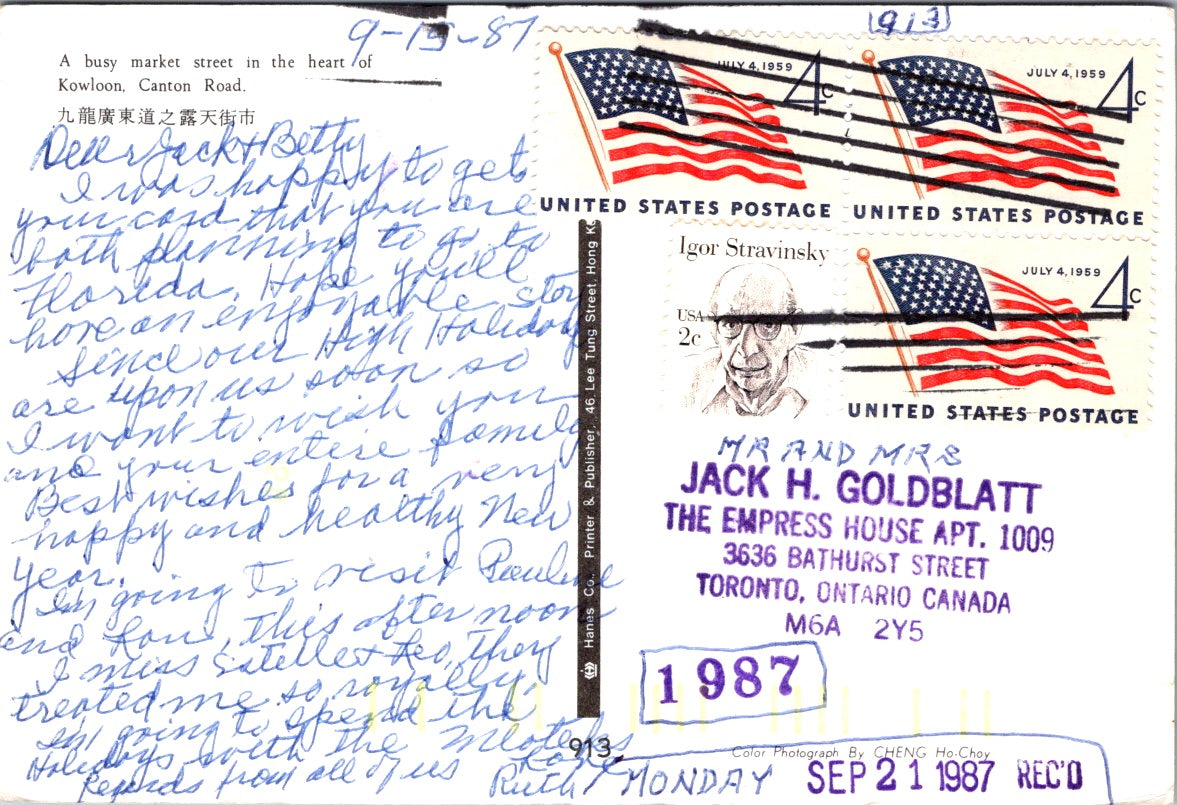 9-15-87
913
A busy market street in the heart of
Kowloon, Canton Road.
九龍廣東道之露天街市
Dear Jack & Betty
I was happy to get
your card that you are
both planning to go to
Florida. Hope you'll
have an enjoyable stay
Since our High Holidays
are upon us soon so
I want to wish you
and your entire family
Best wishes for a very
happy and healthy New
Year.
I'm going to visit Pauline
and this afternoon
I miss Estelle & Leo, they
treated me so royally,
I'm going to spend the
Holidays with the
Regards from all of us
Love
Ruth
JULY 4, 1959
4c
UNITED STATES POSTAGE
JULY 4, 1959
4c
UNITED STATES POSTAGE
Igor Stravinsky
USA
2c
JULY 4, 1959
4c
UNITED STATES POSTAGE
Hanes Co., Printer & Publisher, 46, Lee Tung Street, Hong K
MR AND MRS
JACK H. GOLDBLATT
THE EMPRESS HOUSE APT. 1009
3636 BATHURST STREET
TORONTO, ONTARIO CANADA
M6A 2Y5
1987
913
Color Photograph By CHENG Ho-Choy
MONDAY SEP 21 1987 REC'D